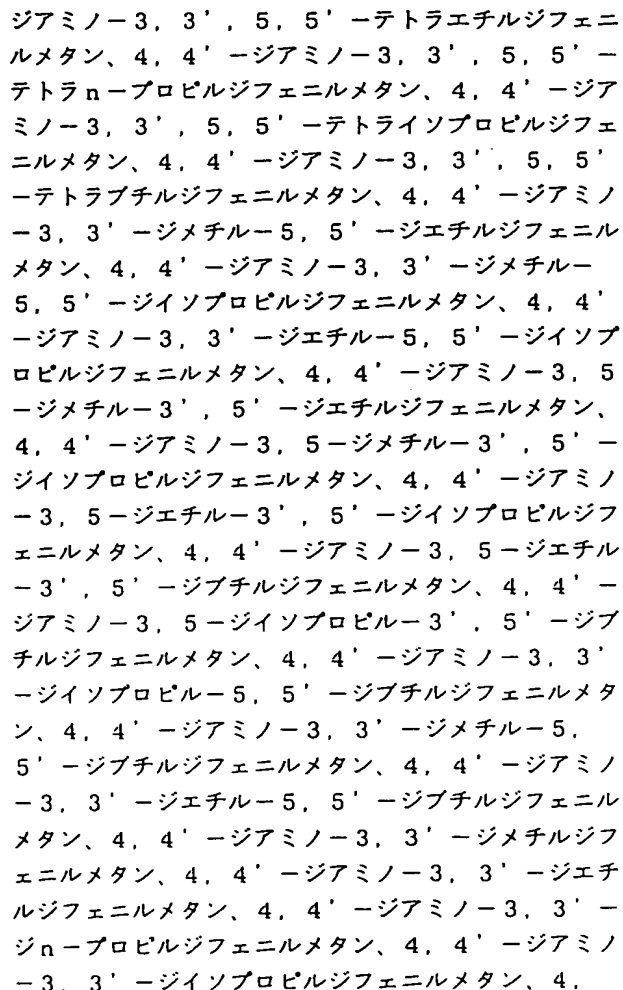 ジアミノ－3，3'，5，5'－テトラエチルジフェニ
ルメタン、4，4'－ジアミノ－3，3'，5，5'－
テトラn－プロピルジフェニルメタン、4，4'－ジア
ミノ－3，3'，5，5'－テトライソプロピルジフェ
ニルメタン、4，4'－ジアミノ－3，3'，5，5'
－テトラブチルジフェニルメタン、4，4'－ジアミノ
－3，3'－ジメチル－5，5'－ジエチルジフェニル
メタン、4，4'－ジアミノ－3，3'－ジメチル－
5，5'－ジイソプロピルジフェニルメタン、4，4'
－ジアミノ－3，3'－ジエチル－5，5'－ジイソプ
ロピルジフェニルメタン、4，4'－ジアミノ－3，5
－ジメチル－3'，5'－ジエチルジフェニルメタン、
4，4'－ジアミノ－3，5－ジメチル－3'，5'－
ジイソプロピルジフェニルメタン、4，4'－ジアミノ
－3，5－ジエチル－3'，5'－ジイソプロピルジフ
ェニルメタン、4，4'－ジアミノ－3，5－ジエチル
－3'，5'－ジブチルジフェニルメタン、4，4'－
ジアミノ－3，5－ジイソプロピル－3'，5'－ジブ
チルジフェニルメタン、4，4'－ジアミノ－3，3'
－ジイソプロピル－5，5'－ジブチルジフェニルメタ
ン、4，4'－ジアミノ－3，3'－ジメチル－5，
5'－ジブチルジフェニルメタン、4，4'－ジアミノ
－3，3'－ジエチル－5，5'－ジブチルジフェニル
メタン、4，4'－ジアミノ－3，3'－ジメチルジフ
ェニルメタン、4，4'－ジアミノ－3，3'－ジエチ
ルジフェニルメタン、4，4'－ジアミノ－3，3'－
ジn－プロピルジフェニルメタン、4，4'－ジアミノ
－3，3'－ジイソプロピルジフェニルメタン、4，